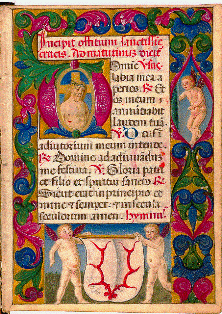 Incipit offitium sanctissie
crucis. Ad matutinũ. Vers
Domie
labia mea a
peries. R Et
os meum ã
nuntiabit
laudem tuã.
V Deus ĩ
adiutorium meum intende.
R Domine ad adiuuandũ
me festina. V Gloria patri
et filio et spiritui sancto R
Sicut erat in principio et
nunc et semper et in secula
seculorum amen. hymnus